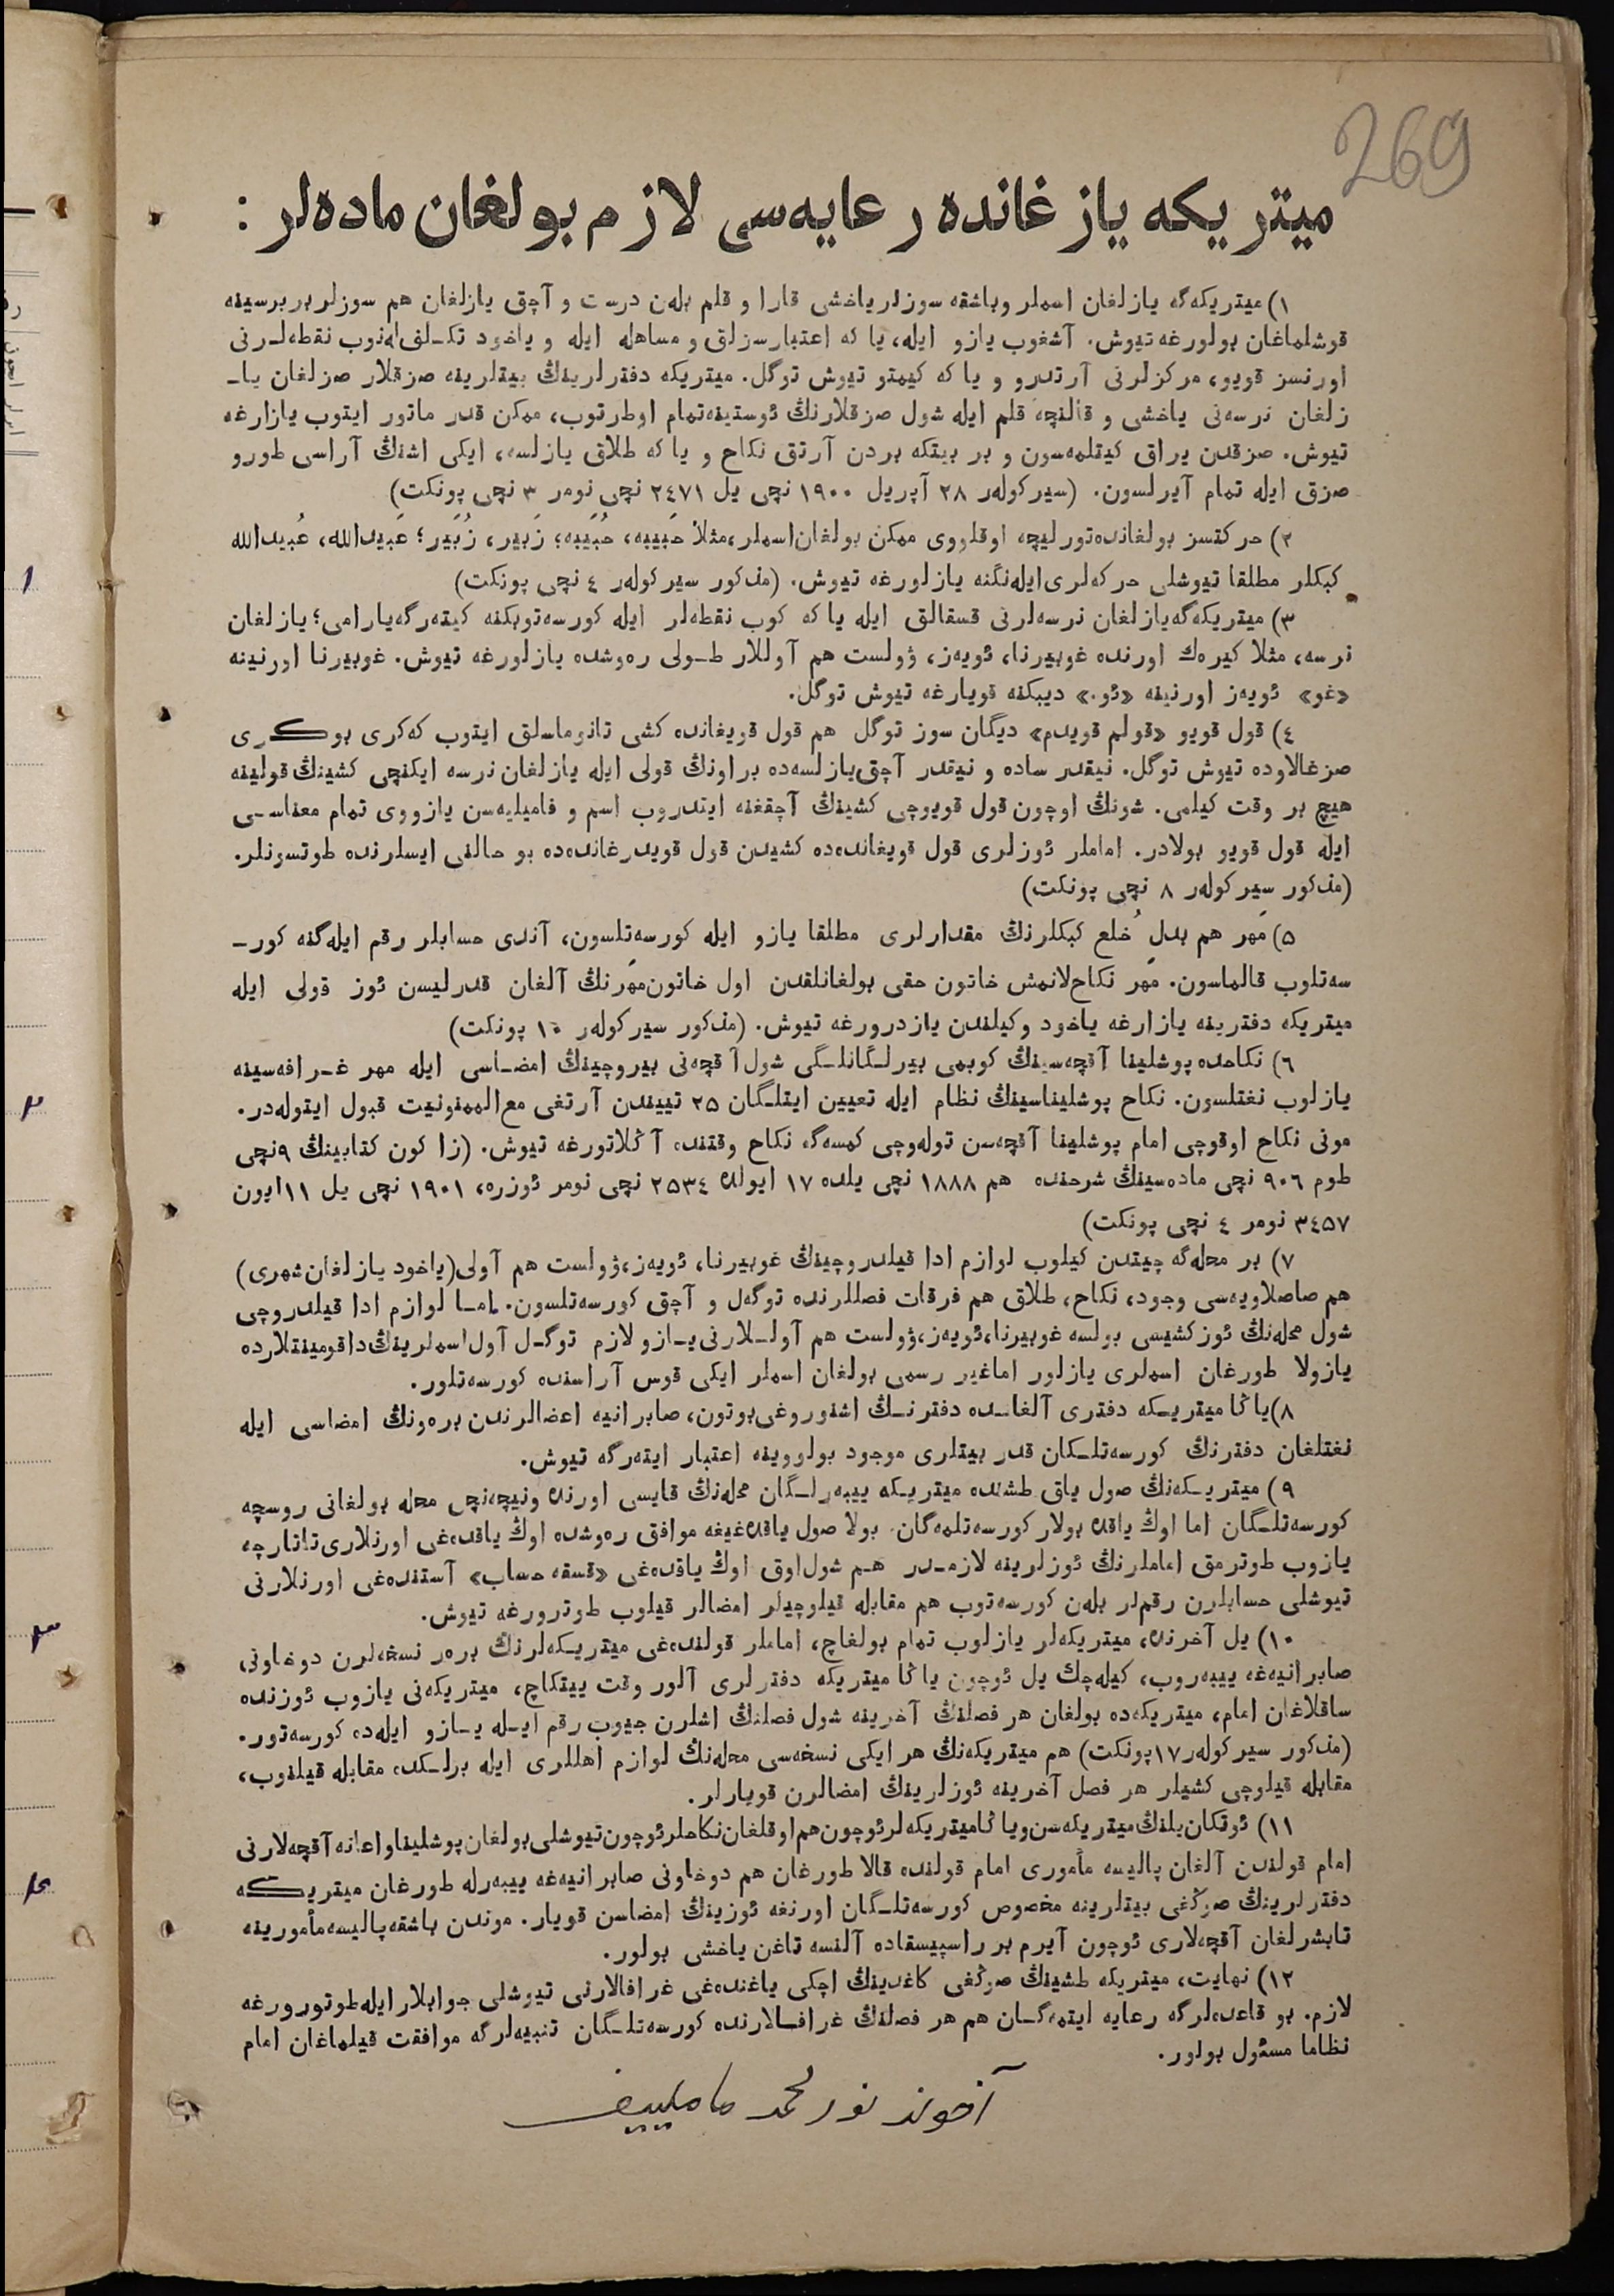 269
میتریکه یازغانده رعایه‌سی لازم بولغان ماده‌لر :
١) میتریکه‌گه یازلغان اسملر وباشقه سوزلر یاخشی قارا و قلم بله‌ن درست و آچق یازلغان هم سوزلر بربرسینه
قوشلماغان بولورغه تیوش. آشغوب یازو ایله، یا که اعتبارسزلق و مساهله ایله و یاخود تکـلف‌له‌نوب نقطه‌لـرنی
اورنسز قویو، مرکزلرنی آرتدرو و یا که کیمتو تیوش توگل. میتریکه دفترلرینڭ بیتلرینه صزقلار صزلغان یا‌ـ
زلغان نرسه‌نی یاخشی و قالنچه قلم ایله شول صزقلارنڭ ئوستینه‌تمام اوطرتوب، ممکن قدر ماتور ایتوب یازارغه
تیوش. صزقدن یراق کیتلمه‌سون و بر بیتکه بردن آرتق نکاح و یا که طلاق یازلسه، ایکی اشنڭ آراسی طورو
صزق ایله تمام آیرلسون. (سیرکولەر ٢٨ آپریل ١٩٠٠ نچی یل ٢٤٧١ نچی نومر ٣ نچی پونکت)
٢) حرکتسز بولغانده‌تورلیچه اوقلووی ممکن بولغان‌اسملر،مثلا حَبیبه، حُبَیبه؛ زَبیر، زُبَیر؛ عَبیدالله، عُبیدالله
کبکلر مطلقا تیوشلی حرکه‌لری‌ایله‌نگنه یازلورغه تیوش. (مذکور سیرکولەر ٤ نچی پونکت)
٣) میتریکه‌گه‌یازلغان نرسه‌لرنی قسقالق ایله یا که کوب نقطه‌لر ایله کورسه‌توبکنه کیته‌رگه‌یارامی؛ یازلغان
نرسه، مثلا کیره‌ك اورنده غوبیرنا، ئویه‌ز، وْولست هم آوللار طـولی ره‌وشده یازلورغه تیوش. غوبیرنا اورنینه
«غو» ئویه‌ز اورنینه «ئو.» دیبکنه قویارغه تیوش توگل.
٤) قول قویو «قولم قویدم» دیگان سوز توگل هم قول قویغانده کشی تانوماسلق ایتوب که‌کری بوکـری
صزغالاوده تیوش توگل. نیقدر ساده و نیقدر آچق‌یازلسه‌ده براونڭ قولی ایله یازلغان نرسه ایکنچی کشینڭ قولینه
هیچ بر وقت کیلمی. شونڭ اوچون قول قویوچی کشینڭ آچقغنه ایتدروب اسم و فامیلیه‌سن یازووی تمام معناسـی
ایله قول قویو بولادر. اماملر ئوزلری قول قویغانده‌ده کشیدن قول قویدرغانده‌ده بو حالنی ایسلرنده طوتسونلر.
(مذکور سیرکولەر ٨ نچی پونکت)
٥) مَهر هم بدلِ خُلع کبکلرنڭ مقدارلری مطلقا یازو ایله کورسه‌تلسون، آندی حسابلر رقم ایله‌گنه کور‌ـ
سه‌تلوب قالماسون. مَهر نکاح‌لانمش خاتون حقی بولغانلقدن اول خاتون‌مَهرنڭ آلغان قدرلیسن ئوز قولی ایله
میتریکه دفترینه یازارغه یاخود وکیلندن یازدرورغه تیوش. (مذکور سیرکولەر ١٠ پونکت)
٦) نکاحده پوشلینا آقچه‌سینڭ کوبمی بیرلـگانلـگی شول آقچه‌نی بیروچینڭ امضـاسی ایله مهر غـرافه‌سینه
یازلوب نغتلسون. نکاح پوشلیناسینڭ نظام ایله تعیین ایتلـگان ٢٥ تییندن آرتغی مع‌الممنونیت قبول ایتوله‌در.
مونی نکاح اوقوچی امام پوشلینا آقچه‌سن توله‌وچی کمسه‌گه نکاح وقتنده آڭلاتورغه تیوش. (زاکون کتابینڭ ٩نچی
طوم ٩٠٦ نچی ماده‌سینڭ شرحنده هم ١٨٨٨ نچی یلده ١٧ ایولده ٢٥٣٤ نچی نومر ئوزره، ١٩٠١ نچی یل ١١ایون
٣٤٥٧ نومر ٤ نچی پونکت)
٧) بر محله‌گه چیتدن کیلوب لوازم ادا قیلدروچینڭ غوبیرنا، ئویه‌ز،وْولست هم آولی(یاخود یازلغان‌شهری)
هم صاصلاویه‌سی وجود، نکاح، طلاق هم فرقات فصللرنده توگه‌ل و آچق کورسه‌تلسون. امـا لوازم ادا قیلدروچی
شول محله‌نڭ ئوزکشیسی بولسه غوبیرنا،ئویه‌ز،وْولست هم آولـلارنی‌یـازو لازم توگـل آول‌اسملرینڭ‌داقومینتلارده
یازولا طورغان اسملری یازلور اماغیر رسمی بولغان اسملر ایکی قوس آراسنده کورسه‌تلور.
٨)یاڭا میتریـکه دفتری آلغانـده دفترنـڭ اشنوروغی‌بوتون، صابرانیه اعضالرندن بره‌ونڭ امضاسی ایله
نغتلغان دفترنڭ کورسه‌تلـکان قدر بیتلری موجود بولووینه اعتبار ایته‌رگه تیوش.
٩) میتریـکه‌نڭ صول یاق طشنده میتریـکه ییبه‌رلـگان محله‌نڭ قایسی اورنده ونیچه‌نچی محله بولغانی روسچه
کورسه‌تلـگان اما اوڭ یاقده بولار کورسه‌تلمه‌گان. بولا صول یاقده‌غیغه موافق ره‌وشده اوڭ یاقده‌غی اورنلاری‌تاتارچه
یازوب طوترمق اماملرنڭ ئوزلرینه لازمـدر هـم شول‌اوق اوڭ یاقده‌غی «قسقه حساب» آستنده‌غی اورنلارنی
تیوشلی حسابلرن رقم‌لر بله‌ن کورسه‌توب هم مقابله قیلوچیلر امضالر قیلوب طوترورغه تیوش.
١٠) یل آخرنده، میتریکه‌لر یازلوب تمام بولغاچ، اماملر قولنده‌غی میتریـکه‌لرنڭ بره‌ر نسخه‌لرن دوخاونی
صابرانیه‌غه ییبه‌روب، کیله‌چك یل ئوچون یاڭا میتریکه دفترلری آلور وقت ییتکاچ، میتریکه‌نی یازوب ئوزنده
ساقلاغان امام، میتریکه‌ده بولغان هر فصلنڭ آخرینه شول فصلنڭ اشلرن جیوب رقم ایـله یـازو ایله‌ده کورسه‌تور.
(مذکور سیرکولەر١٧پونکت) هم میتریکه‌نڭ هر ایکی نسخه‌سی محله‌نڭ لوازم اهللری ایله برلـکده مقابله قیلنوب،
مقابله قیلوچی کشیلر هر فصل آخرینه ئوزلرینڭ امضالرن قویارلر.
١١) ئوتکان‌یلنڭ‌میتریکه‌سن‌ویاڭامیتریکه‌لرئوچون‌هم‌اوقلغان‌نکاحلرئوچون‌تیوشلی‌بولغان‌پوشلیناواعانه‌آقچه‌لارنی
امام قولندن آلغان پالیسه مأموری امام قولنده قالا طورغان هم دوخاونی صابرانیه‌غه ییبه‌رله طورغان میتریـکه
دفترلرینڭ صوڭغی بیتلرینه مخصوص کورسه‌تلـگان اورنغه ئوزینڭ امضاسن قویار. موندن باشقه‌پالیسه‌مأمورینه
تابشرلغان آقچه‌لاری ئوچون آیرم بر راسپیسقاده آلنسه تاغن یاخشی بولور.
١٢) نهایت، میتریکه طشینڭ صوڭغی کاغدینڭ اچکی یاغنده‌غی غرافالارنی تیوشلی جوابلارایله‌طوتورورغه
لازم. بو قاعده‌لرگه رعایه ایتمه‌گـان هم هر فصلنڭ غرافـالارنده کورسه‌تلـگان تنبیه‌لرگه موافقت قیلماغان امام
نظاما مسئول بولور.
آخوند نورمحمد ماملییف